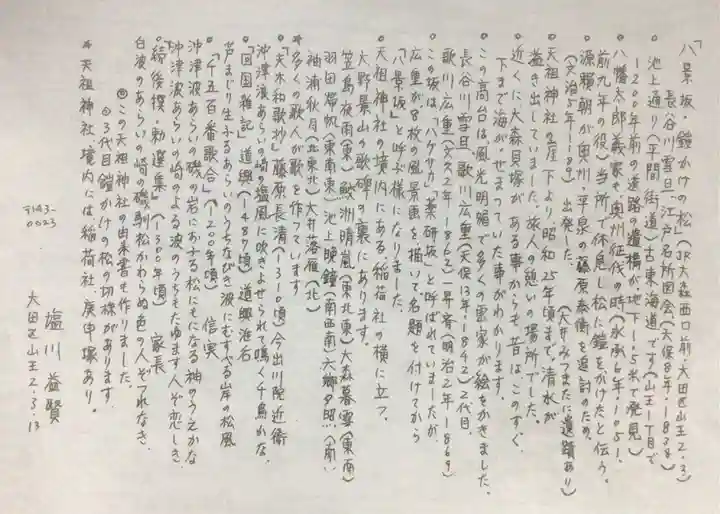 「八景坂・鎧かけの松」(JR大森西口前・大田区山王2.3.)
長谷川雪旦「江戸名所図会(天保8年・1838)
池上通り(平間街道)古東海道です(山王1丁目で
1200年前の道路の遺構が地下1.5米で発見)
八幡太郎義家も(奥州征伐の時(永承6年・1051.
前九年の役)当所で休息し松に鎧をかけたと伝う。
源頼朝が奥州・平泉の藤原泰衡を追討のため、
(文治5年・1189)出発した。(大井みつまたに遺蹟あり)
天祖神社の崖下より昭和25年頃まで、清水が
湧き出していました。旅人の憩いの場所でした。
近くに大森貝塚がある事からも昔はこのすぐ
下まで海がせまっていた事がわかります。
この高台は風光明媚で多くの画家が絵をかきました。
長谷川雪旦、歌川広重(天保13年・1842)2代目、
歌川広重(文久2年・1862)一昇斉(明治2年・1869)
この坂は「ハケサカ」「薬研坂」と呼ばれていましたが、
広重が8枚の風景画を描いて名題を付けてから
「八景坂」と呼ぶ様になりました。
天祖神社の境内にある、稲荷社の横に立つ、
大野景山の歌碑の裏にあります。
笠島夜雨(東)鮫洲晴嵐(東北東)大森暮雪(東南)
羽田帰帆(東南東)池上晩鐘(南西南)六郷夕照(南)
袖浦秋月(北東北)大井落雁(北)
多くの歌人が歌を作っています
「夫木和歌抄」藤原長清(1310頃)今出川院近衛
沖津浪あらいの崎の塩風に吹きよせられて鳴く千鳥かな、
「回国雑記」道興(1487頃)道興准后
芦まじり生ふるあらいのうちなびき波にむすべる岸の松風
「千五百番歌合」(1200年頃)信実
沖津波あらいの磯の岩におふる松にもになる袖のうえかな
沖津波あらいの崎のよる波のうちもたゆます人ぞ恋しき
「続後撰・勅選集」(1300年頃)家長
白波のあらいの崎の磯馴松かわらぬ色の人ぞつれなき、
この天祖神社の由来書も作りました。
3代目鎧かけの松の切株があります。
天祖神社境内には稲荷社、庚申塚あり。
〒143-0023
大田区山王2.3.13
塩川益賢